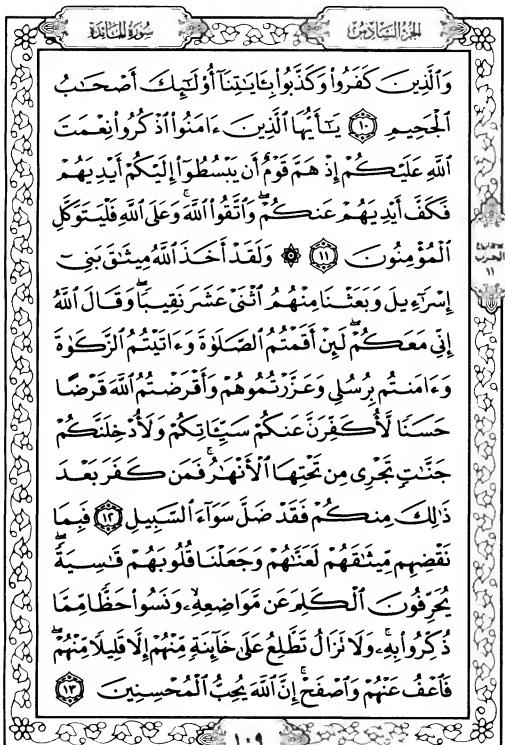 الجزء السادس
سورة المائدة
وَالَّذِينَ كَفَرُوا۟ وَكَذَّبُوا۟ بِـَٔايَـٰتِنَآ أُو۟لَـٰٓئِكَ أَصْحَـٰبُ
ٱلْجَحِيمِ ١٠ يَـٰٓأَيُّهَا ٱلَّذِينَ ءَامَنُوا۟ ٱذْكُرُوا۟ نِعْمَتَ
ٱللَّهِ عَلَيْكُمْ إِذْ هَمَّ قَوْمٌ أَن يَبْسُطُوٓا۟ إِلَيْكُمْ أَيْدِيَهُمْ
فَكَفَّ أَيْدِيَهُمْ عَنكُمْ ۖ وَٱتَّقُوا۟ ٱللَّهَ ۚ وَعَلَى ٱللَّهِ فَلْيَتَوَكَّلِ
ٱلْمُؤْمِنُونَ ١١ ۞ وَلَقَدْ أَخَذَ ٱللَّهُ مِيثَـٰقَ بَنِىٓ
إِسْرَٰٓءِيلَ وَبَعَثْنَا مِنْهُمُ ٱثْنَىْ عَشَرَ نَقِيبًا ۖ وَقَالَ ٱللَّهُ
إِنِّى مَعَكُمْ ۖ لَئِنْ أَقَمْتُمُ ٱلصَّلَوٰةَ وَءَاتَيْتُمُ ٱلزَّكَوٰةَ
وَءَامَنتُم بِرُسُلِى وَعَزَّرْتُمُوهُمْ وَأَقْرَضْتُمُ ٱللَّهَ قَرْضًا
حَسَنًا لَّأُكَفِّرَنَّ عَنكُمْ سَيِّـَٔاتِكُمْ وَلَأُدْخِلَنَّكُمْ
جَنَّـٰتٍ تَجْرِى مِن تَحْتِهَا ٱلْأَنْهَـٰرُ ۚ فَمَن كَفَرَ بَعْدَ
ذَٰلِكَ مِنكُمْ فَقَدْ ضَلَّ سَوَآءَ ٱلسَّبِيلِ ١٢ فَبِمَا
نَقْضِهِم مِّيثَـٰقَهُمْ لَعَنَّـٰهُمْ وَجَعَلْنَا قُلُوبَهُمْ قَـٰسِيَةً ۖ
يُحَرِّفُونَ ٱلْكَلِمَ عَن مَّوَاضِعِهِۦ ۙ وَنَسُوا۟ حَظًّا مِّمَّا
ذُكِّرُوا۟ بِهِۦ ۚ وَلَا تَزَالُ تَطَّلِعُ عَلَىٰ خَآئِنَةٍ مِّنْهُمْ إِلَّا قَلِيلًا مِّنْهُمْ ۖ
فَٱعْفُ عَنْهُمْ وَٱصْفَحْ ۚ إِنَّ ٱللَّهَ يُحِبُّ ٱلْمُحْسِنِينَ ١٣
الحزب
١١
١٠٩